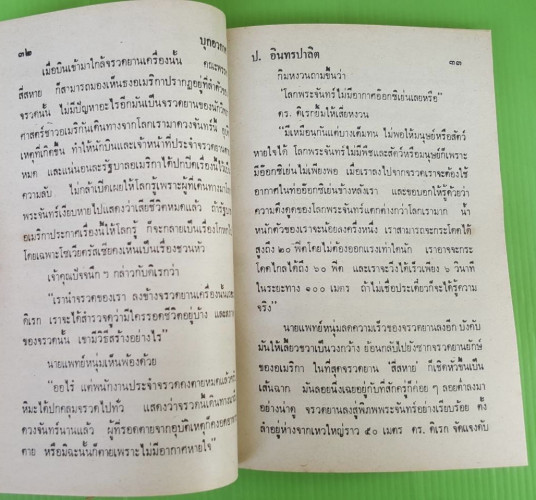 ๓๒ บุกอวกาศ
เมื่อบินเข้ามาใกล้จรวดยานเครื่องนั้น
สี่สหาย ก็สามารถมองเห็นธงอเมริกาปรากฏอยู่ที่ลำตัว
จรวดนั้น ไม่มีปัญหาอะไรอีกมันเป็นจรวดยานของนัก
ศาสตร์ชาวอเมริกันเดินทางจากโลกเรามาดวงจันทร์นี้
เหตุที่เกิดขึ้น ทำให้นักบินและเจ้าหน้าที่ประจำจรวดยาน
หมด และแน่นอนละรัฐบาลอเมริกาได้ปกปิดเรื่องนี้ไว้เป็น
ความลับ ไม่กล้าเปิดเผยให้โลกรู้เพราะผู้ที่เดินทางมา
พระจันทร์เงียบหายไปแสดงว่าเสียชีวิตหมดแล้ว ถ้ารัฐบาล
อเมริกาประกาศเรื่องนี้ให้โลกรู้ ก็จะกลายเป็นเรื่อง
โดยเฉพาะโซเวียตรัสเซียคงเห็นเป็นเรื่องชวนหัว
เจ้าคุณปัจจนึก ๆ กล่าวกับดิเรกว่า
"เรานำจรวดของเรา ลงข้างจรวดยานเครื่องนั้นเถอะ
ดิเรก เราจะได้สำรวจดูว่ามีใครรอดชีวิตอยู่บ้าง และ
ของจรวดนั้น เขามีวิธีสร้างอย่างไร"
นายแพทย์หนุ่มเห็นพ้องด้วย
"ออไร๋ แต่พนักงานประจำจรวดคงตายหมดแล้ว
หิมะได้ปกคลุมจรวดไปทั่ว แสดงว่าจรวดนี้เดินทาง
ดวงจันทร์นานแล้ว ผู้ที่รอดตายจากอุบัติเหตุก็คง
ตาย หรือมิฉะนั้นก็ตายเพราะไม่มีอากาศหายใจ"
ป. อินทรปาลิต ๓๓
กิมหงวนถามขึ้นว่า
"โลกพระจันทร์ไม่มีอากาศอ๊อกซิเย่นเลยหรือ"
ดร. ดิเรกยิ้มให้เสี่ยหงวน
"มีเหมือนกันแต่บางเต็มทน ไม่พอให้มนุษย์หรือสัตว์
หายใจได้ โลกพระจันทร์ไม่มีพืชและสัตว์หรือมนุษย์ก็เพราะ
มีอ๊อกซิเย่นไม่เพียงพอ เมื่อเราลงไปจากจรวดเราจะต้องใช้
อากาศในท่ออ๊อกซิเย่นข้างหลังเรา และขอบอกให้รู้ด้วยว่า
ความดึงดูดของโลกพระจันทร์แตกต่างกว่าโลกเรามาก น้ำ
หนักตัวของเราจะน้อยลงครึ่งหนึ่ง เราสามารถจะกระโดดได้
สูงถึง ๒๐ ฟิตโดยไม่ต้องออกแรงเท่าใดนัก เราอาจจะกระ
โดดไกลได้ถึง ๖๐ ฟิต และเราจะวิ่งได้เร็วเพียง ๖ วินาที
ในระยะทาง ๑๐๐ เมตร ถ้าไม่เชื่อประเดี๋ยวก็จะได้รู้ความ
จริง"
นายแพทย์หนุ่มลดความเร็วของจรวดยานลงอีก บังคับ
มันให้เลี้ยวขวาเป็นวงกว้าง ย้อนกลับไปยังซากจรวดยานยักษ์
ของอเมริกา ในที่สุดจรวดยาน 'สี่สหาย' ก็เชิดหัวขึ้นเป็น
เส้นฉาก มันลอยนิ่งเฉยอยู่กับที่สักครู่ก็ค่อย ๆ ลอยต่ำลงมา
อย่างน่าดู จรวดยานลงสู่พิภพพระจันทร์อย่างเรียบร้อย ตั้ง
ลำอยู่ห่างจากเหวใหญ่ราว ๕๐ เมตร ดร. ดิเรก จัดแจงดับ